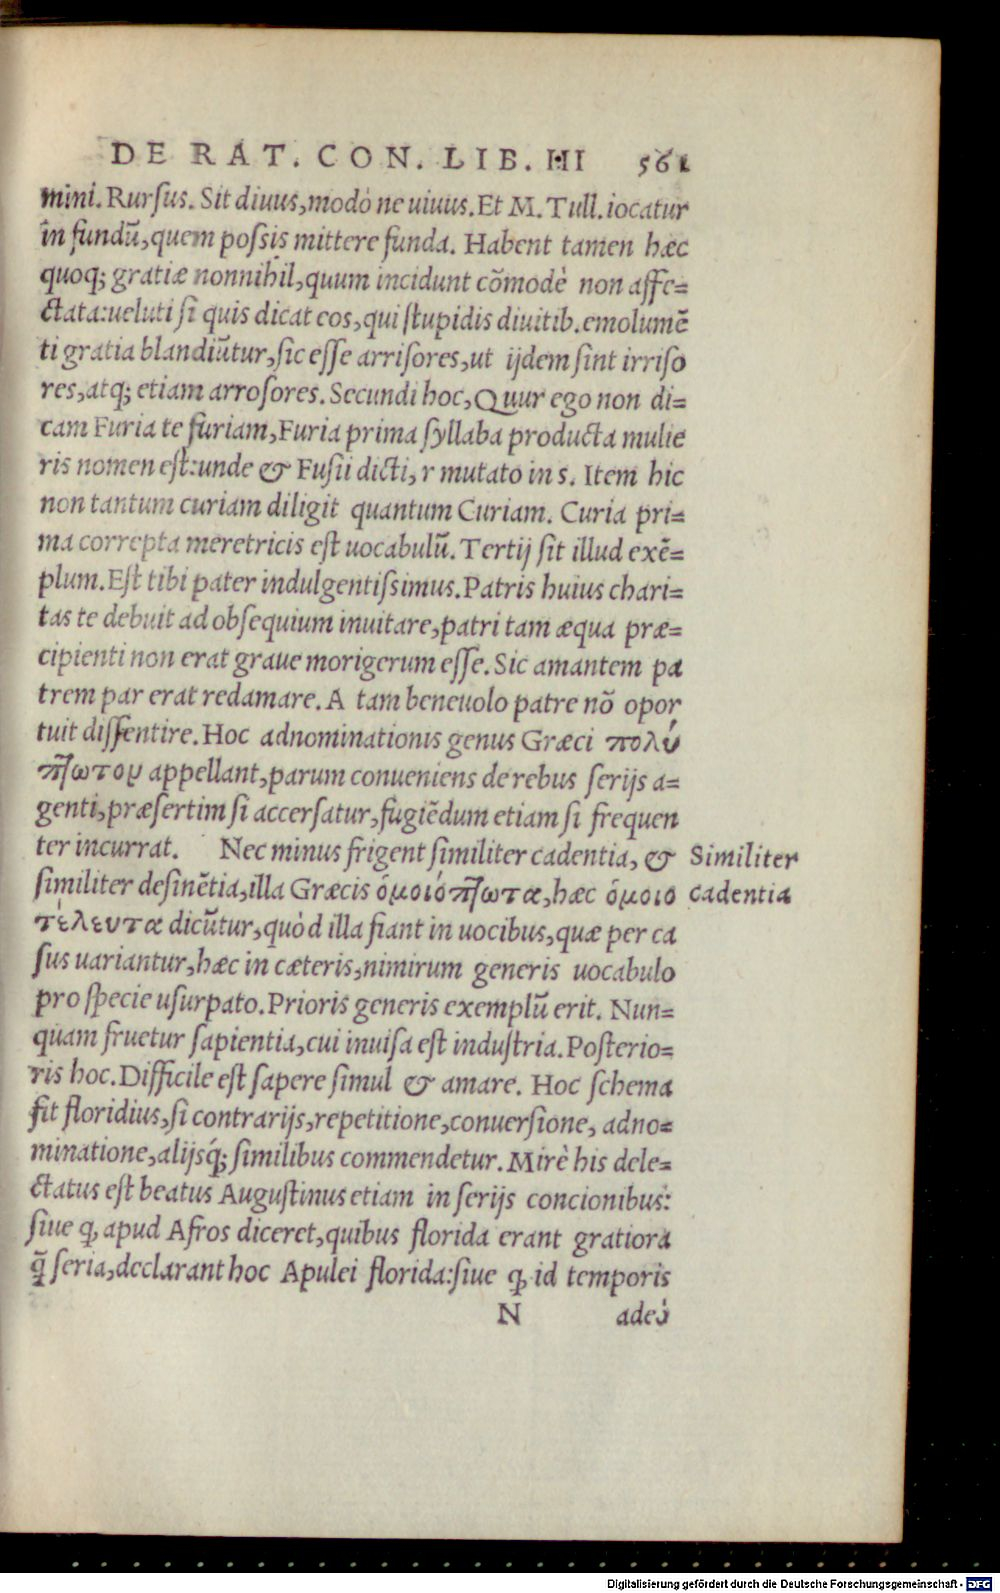 DE RAT. CON. LIB. III 561
mini. Rursus. Sit diuus, modò ne uiuus. Et M. Tull. iocatur
in fundũ, quem possis mittere funda. Habent tamen hæc
quoq; gratiæ nonnihil, quum incidunt cõmodè non affe=
ctata: ueluti si quis dicat eos, qui stupidis diuitib. emolumẽ
ti gratia blandiũtur, sic esse arrisores, ut ijdem sint irriso
res, atq; etiam arrosores. Secundi hoc, Quur ego non di=
cam Furia te furiam, Furia prima syllaba producta mulie
ris nomen est: unde & Fusii dicti, r mutato in s. Item hic
non tantum curiam diligit quantum Curiam. Curia pri=
ma correpta meretricis est uocabulũ. Tertij sit illud exẽ=
plum. Est tibi pater indulgentissimus. Patris huius chari=
tas te debuit ad obsequium inuitare, patri tam æqua præ=
cipienti non erat graue morigerum esse. Sic amantem pa
trem par erat redamare. A tam beneuolo patre nõ opor
tuit dissentire. Hoc adnominationis genus Græci πολύ
πτωτον appellant, parum conueniens de rebus serijs a=
genti, præsertim si accersatur, fugiẽdum etiam si frequen
ter incurrat. Nec minus frigent similiter cadentia, &
similiter desinẽtia, illa Græcis ὁμοιόπτωτα, hæc ὁμοιο
τέλευτα dicũtur, quòd illa fiant in uocibus, quæ per ca
sus uariantur, hæc in cæteris, nimirum generis uocabulo
pro specie usurpato. Prioris generis exemplũ erit. Nun=
quam fruetur sapientia, cui inuisa est industria. Posterio=
ris hoc. Difficile est sapere simul & amare. Hoc schema
fit floridius, si contrarijs, repetitione, conuersione, adno=
minatione, alijsq́; similibus commendetur. Mirè his dele=
ctatus est beatus Augustinus etiam in serijs concionibus:
siue ꝙ apud Afros diceret, quibus florida erant gratiora
q̃ seria, declarant hoc Apulei florida: siue ꝙ id temporis
N adeò
Similiter
cadentia
Digitalisierung gefördert durch die Deutsche Forschungsgemeinschaft - DFG